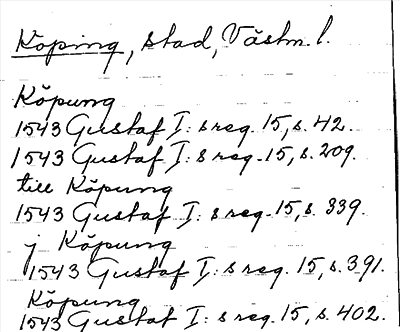 Köping, stad, Västm. l.
Köpung
1543 Gustaf I: s reg. 15, s. 42.
1543 Gustaf I: s reg. 15, s. 209.
till Köpung
1543 Gustaf I: s reg. 15, s. 339.
j Köpung
1543 Gustaf I: s reg. 15, s. 391.
Köpung
1543 Gustaf I: s reg. 15, s. 402.